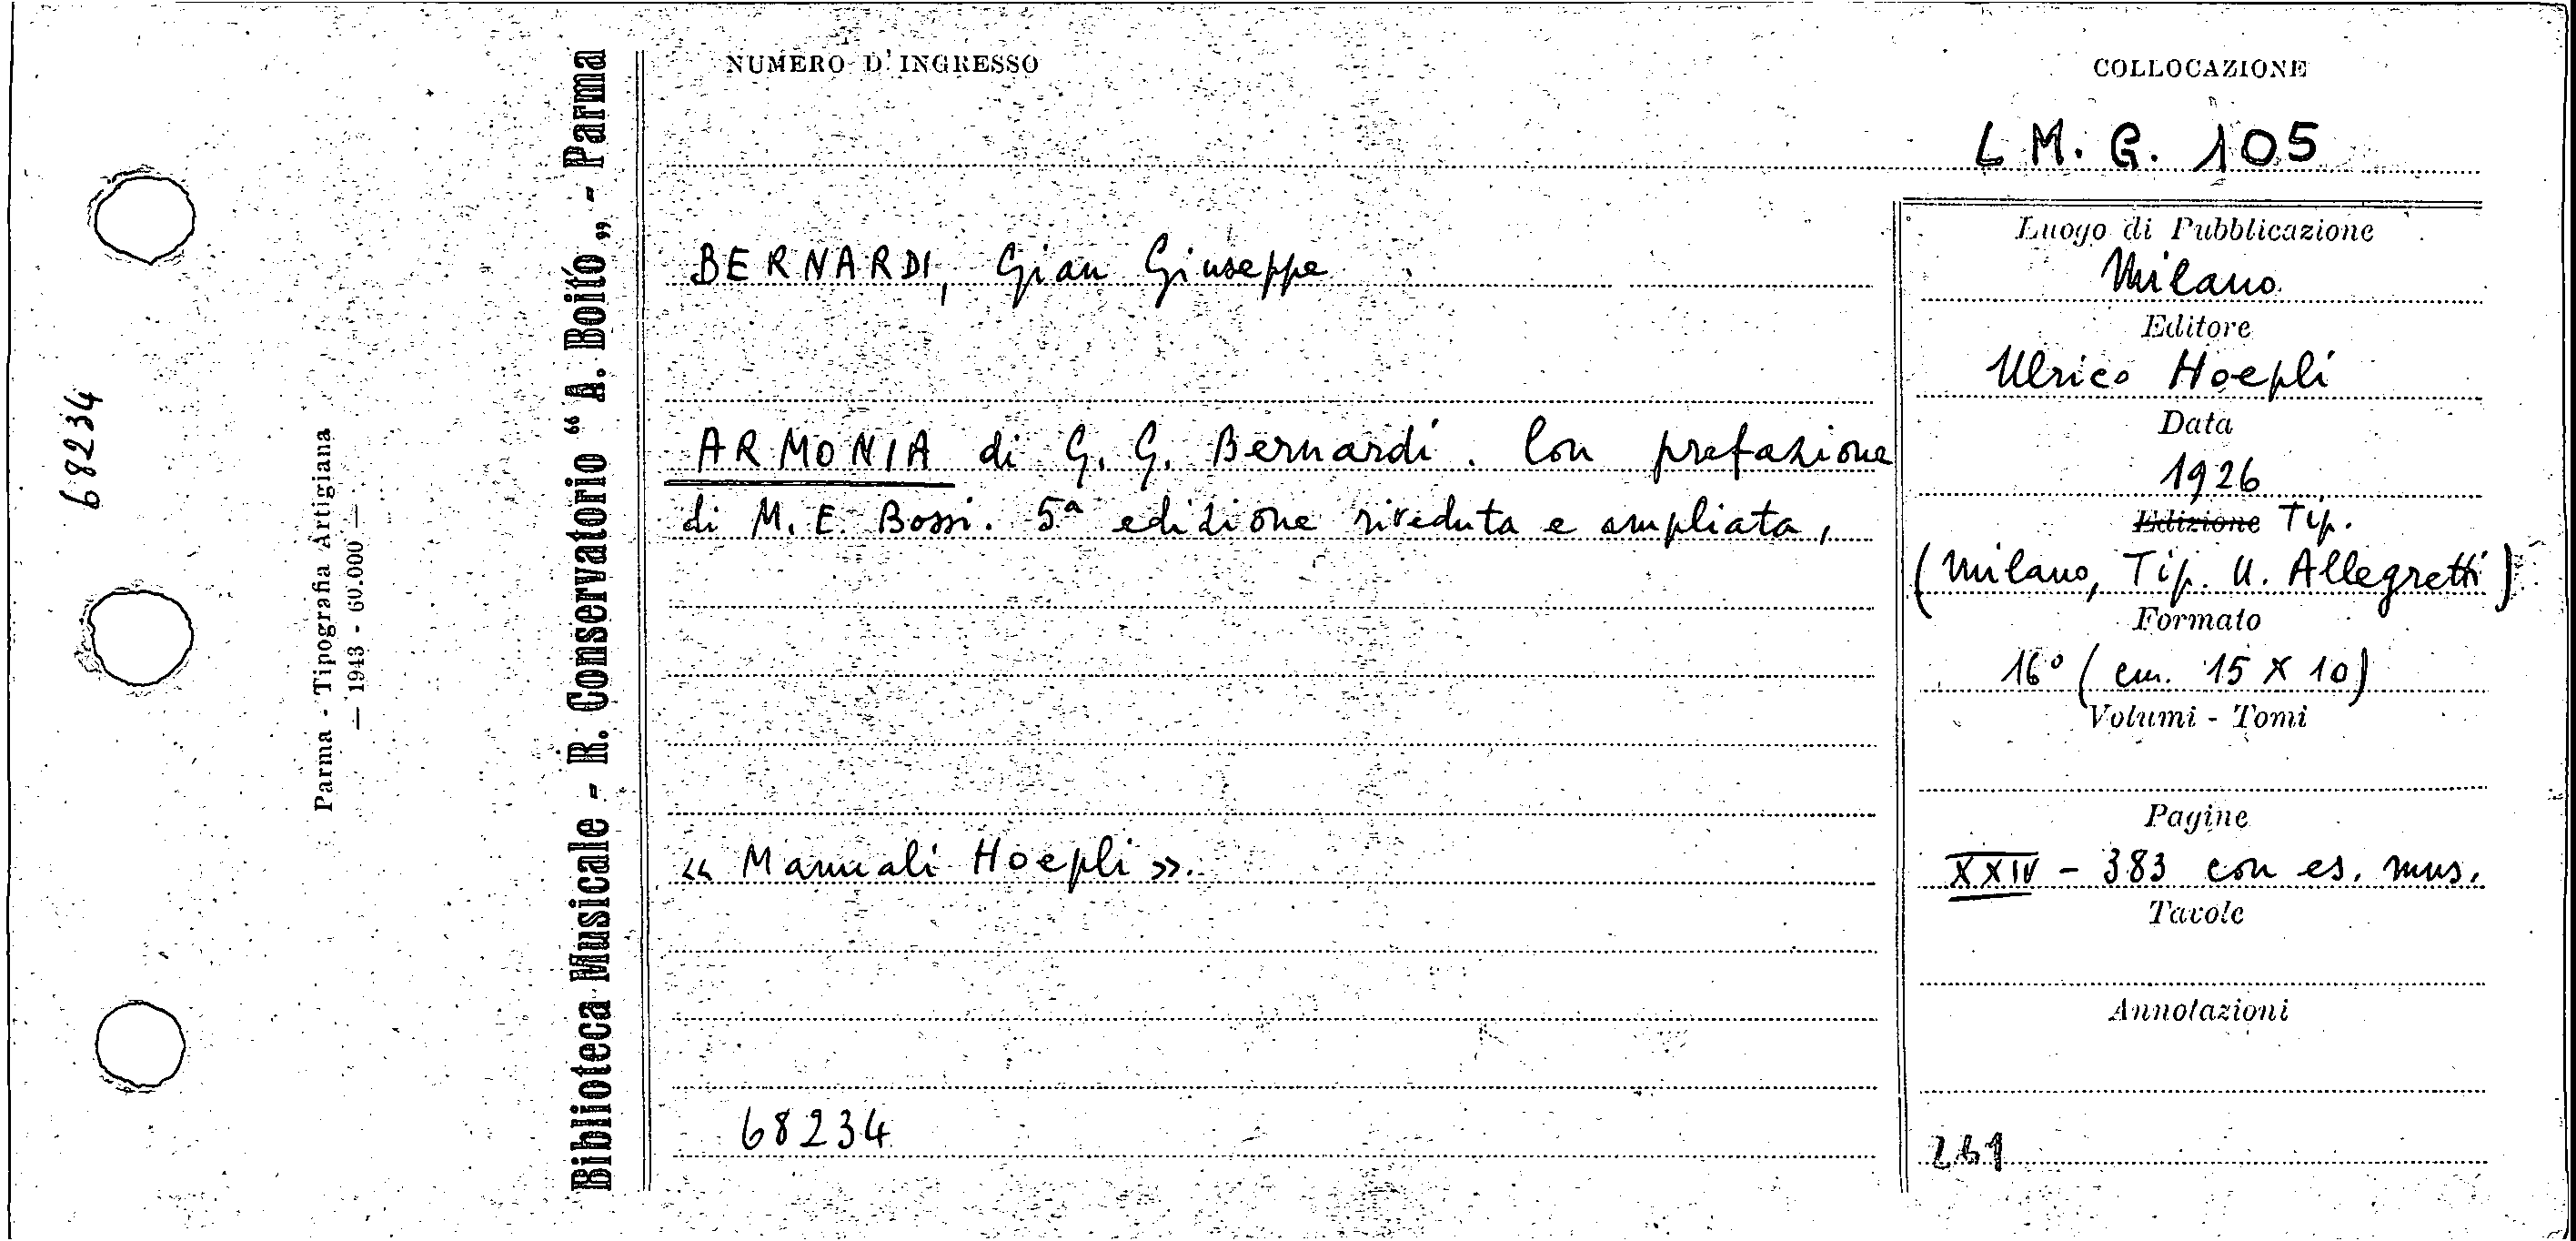 NUMERO D'INGRESSO
COLLOCAZIONE
L M. G. 105
BERNARDI, Gian Giuseppe
ARMONIA di G. G. Bernardi. Con prefazione
di M. E. Bossi. 5ª edizione riveduta e ampliata,
« Manuali Hoepli ».
68234
Luogo di Pubblicazione
Milano
Editore
Ulrico Hoepli
Data
1926
Edizione Tip.
(Milano, Tip. U. Allegretti)
Formato
16° (cm. 15 X 10)
Volumi - Tomi
Pagine
XXIV - 383 con es. mus.
Tavole
Annotazioni
Biblioteca Musicale - R. Conservatorio “ A. Boito „ - Parma
Parma - Tipografia Artigiana
— 1943 - 60.000 —
68234